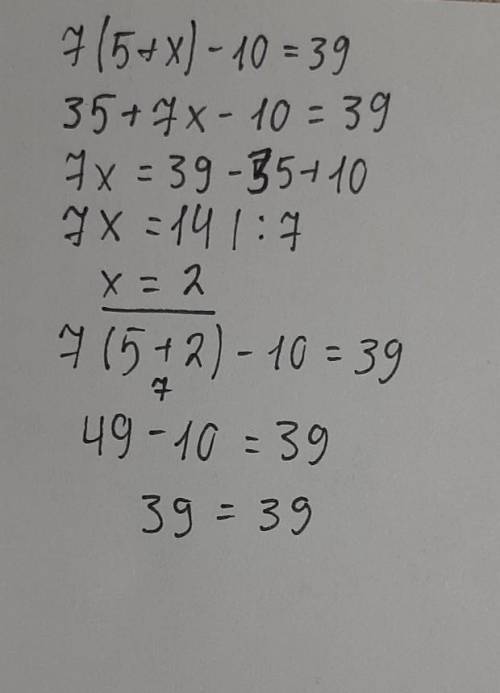 7(5+x)-10=39
35+7x-10=39
7x=39-35+10
7x=14 | :7
x=2
7(5+2)-10=39
7
49-10=39
39=39